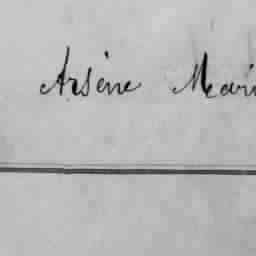 Arsène Mari